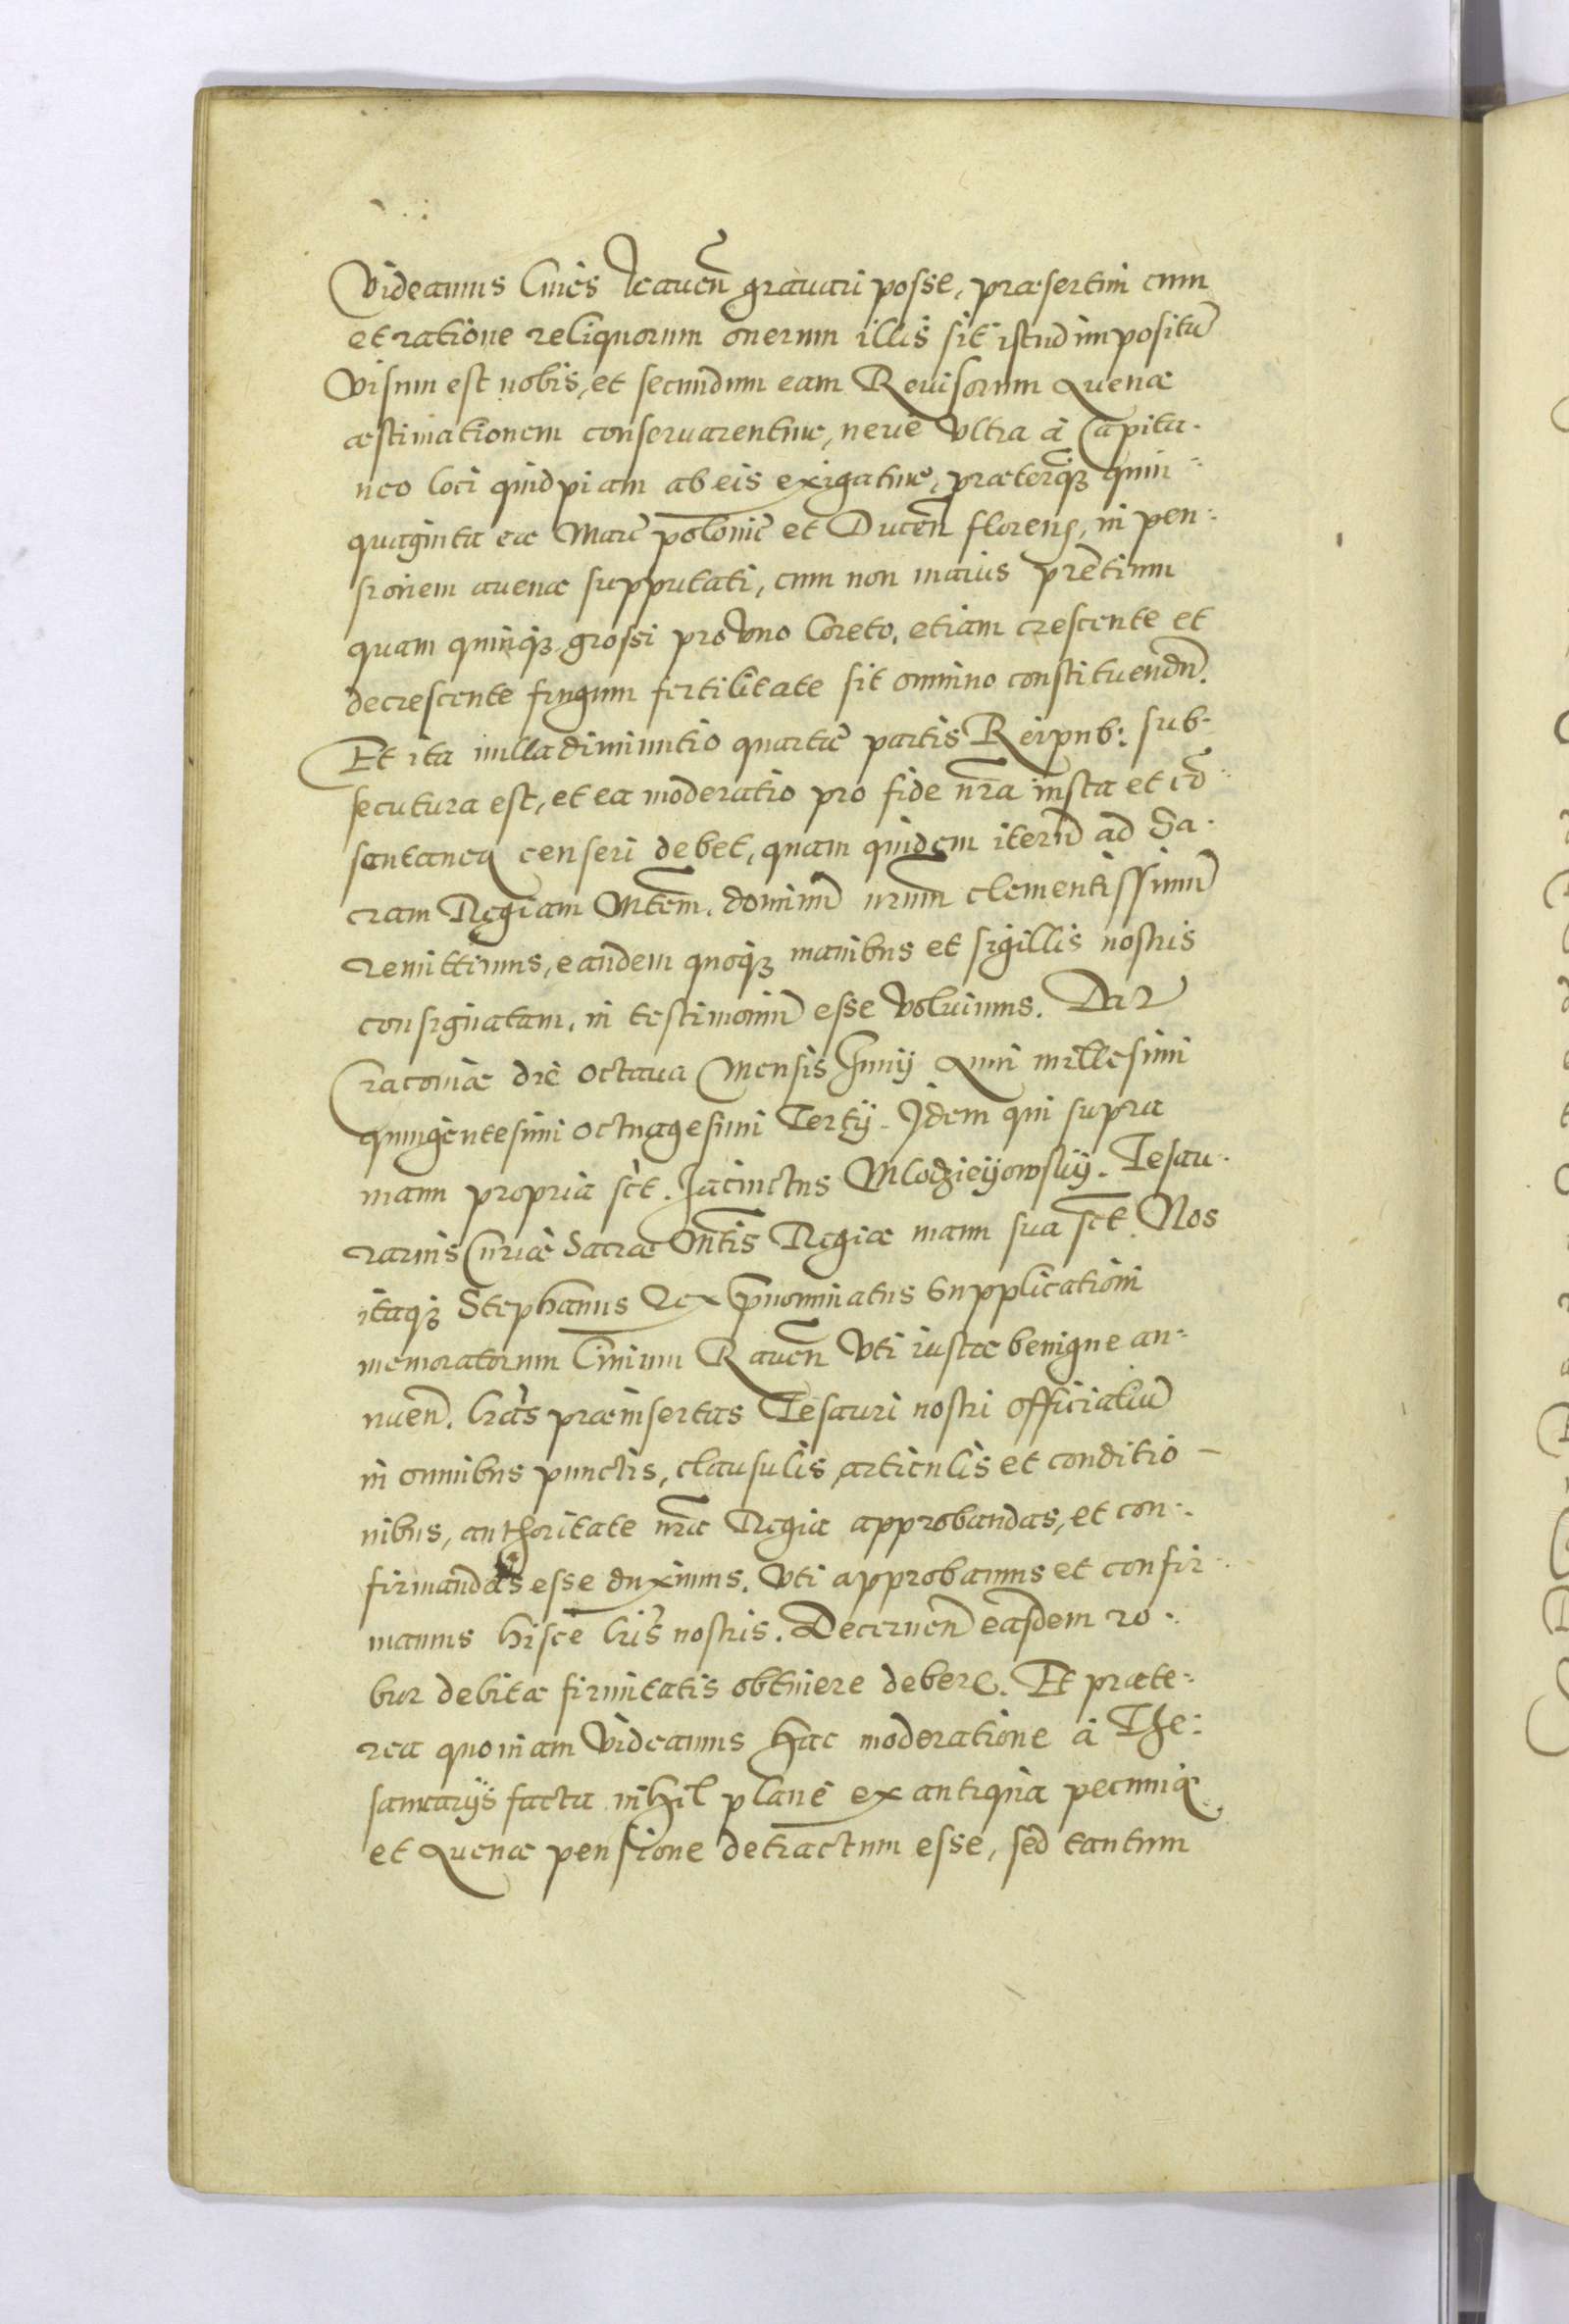 Videamus Ciues Rauen̄ grauari posse, præsertim cum
et ratione reliquorum onerum illis sit istud impositū
Visum est nobis, et secundum eam Reuisorum Auenæ
æstimationem conseruarentur, neue Vltra à Capita-
neo loci quidpiam ab eis exigatur, præterq̃ quin-
quaginta eæ Marc̄ polonic̄ et Ducen̄ floreny, in pen-
sionem auenæ supputati, cum non maius pretium
quam quinq; grossi pro Vno Coreto, etiam crescente et
decrescente frugum fertilitate sit omnino constituendū.
Et ita nulla diminutio quartæ partis Reipub: sub-
secutura est, et ea moderatio pro fide nr̄a iusta et cō-
sentanea censeri debet, quam quidem iterū ad Sa-
cram Regiam Mt̄em, dominū nr̄um clementissimū
remittimus, eandem quoq; manibus et sigillis nostris
consignatam, in testimoniū esse Voluimus. Dat
Cracouiæ die Octaua Mensis Junij Anni millesimi
quingentesimi Octuagesimi Tertij. Idem qui supra
manu propria sc̄t. Jacinctus Mlodzieyowsky. Tesau-
rarius Curiæ Sacræ Mt̄is Regiæ manu sua sc̄t. Nos
itaq; Stephanus Rex prænominatus Supplicationi
memoratorum Ciuium Rauen̄ Vti iustæ benigne an-
nuen̄. lr̄as præinsertas Tesauri nostri officialiū
in omnibus punctis, clausulis articulis et conditio-
nibus, authoritate nr̄a Regia approbandas, et con-
firmandas esse duximus. Vti approbamus et confir-
mamus hisce lr̄is nostris. Decernen̄ easdem ro-
bur debitæ firmitatis obtinere debere. Et præte-
rea quoniam Videamus hac moderatione à The-
saurarijs facta nihil plane ex antiqua pecuniæ
et Auenæ pensione detractum esse, sed tantum